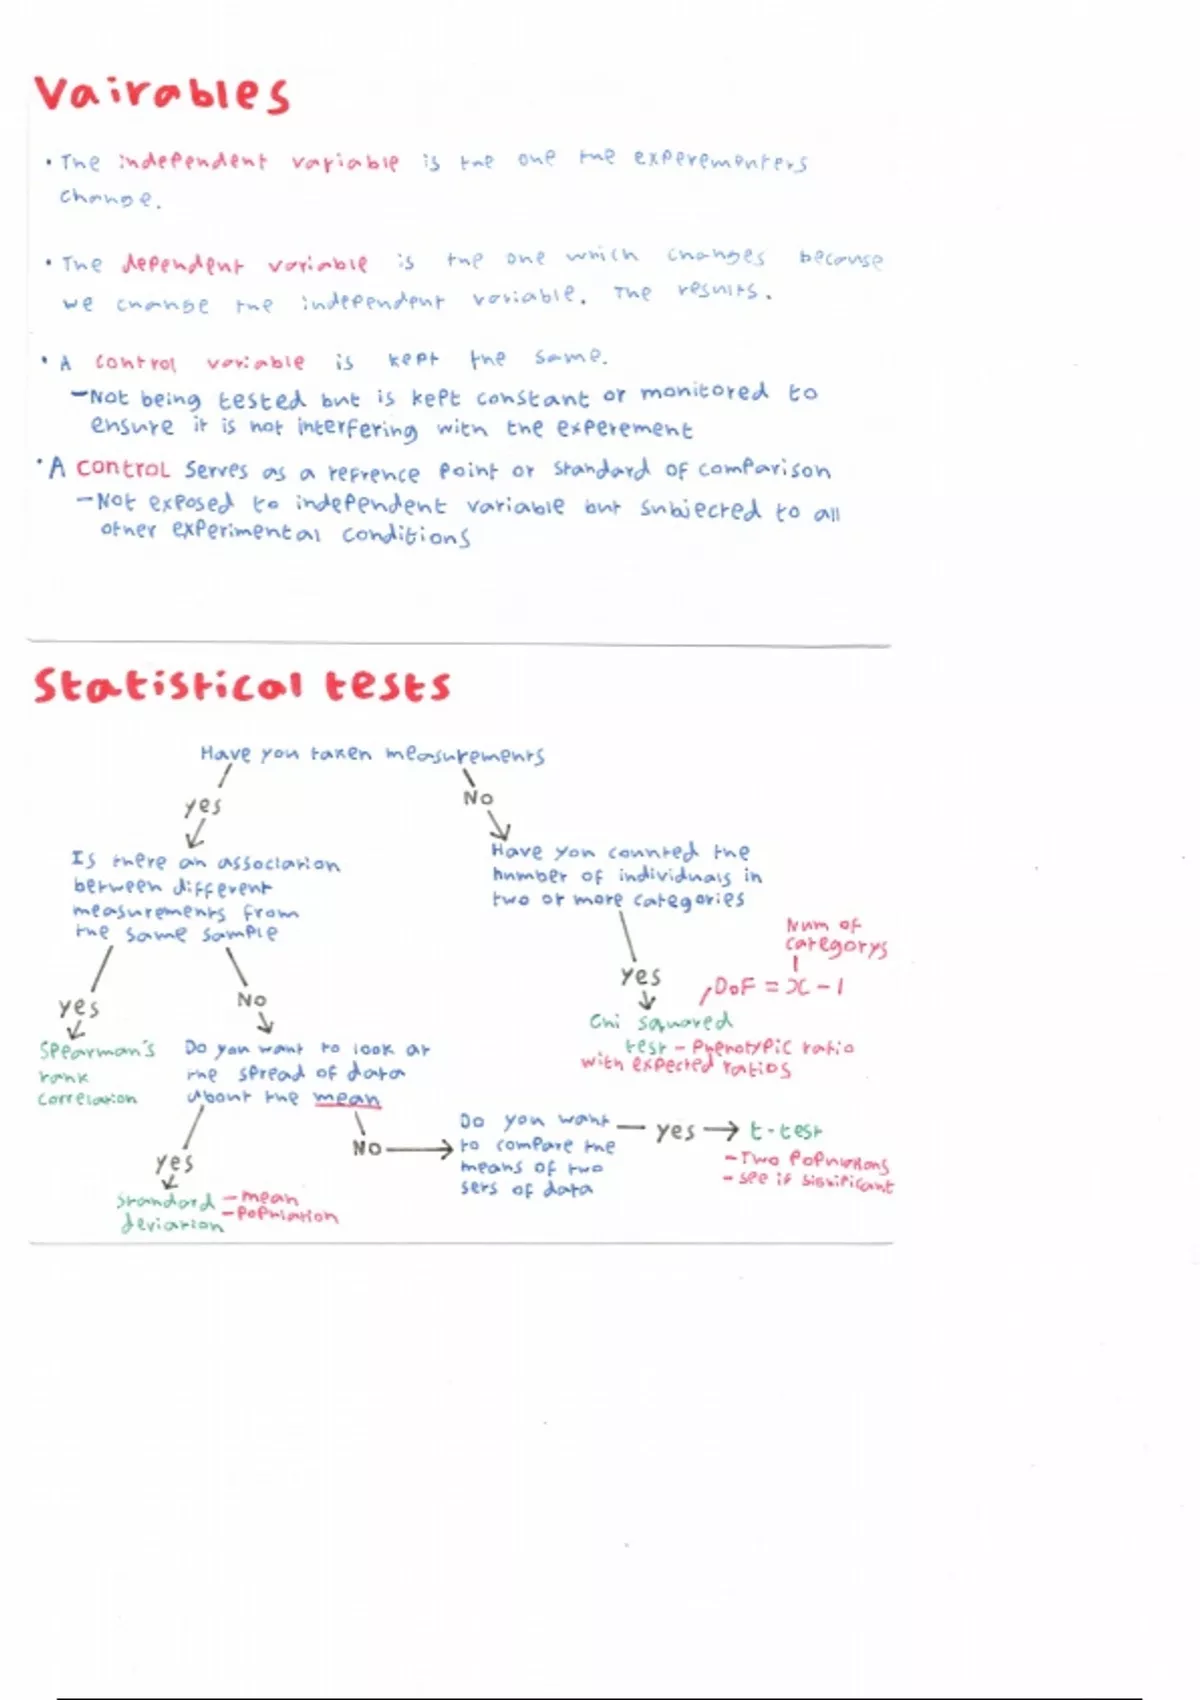 Vairables
• The independent variable is the one the experementers
change.
• The dependent variable is the one which changes because
we change the independent variable. The results.
• A control variable is kept the same.
- Not being tested but is kept constant or monitored to
ensure it is not interfering with the experement
• A control serves as a refrence point or standard of comparison
- Not exposed to independent variable but subjected to all
other experimental conditions
Statistical tests
Have you taken measurements
yes
No
Is there an association
between different
measurements from
the same sample
Have you counted the
number of individuals in
two or more categories
Num of
categorys
yes
No
yes
DoF = x - 1
Spearman's
rank
correlation
Do you want to look at
the spread of data
about the mean
Chi squared
test - Phenotypic ratio
with expected ratios
yes
No
Do you want
to compare the
means of two
sets of data
yes
t-test
- Two populations
- see if significant
Standard
deviation
- mean
- population